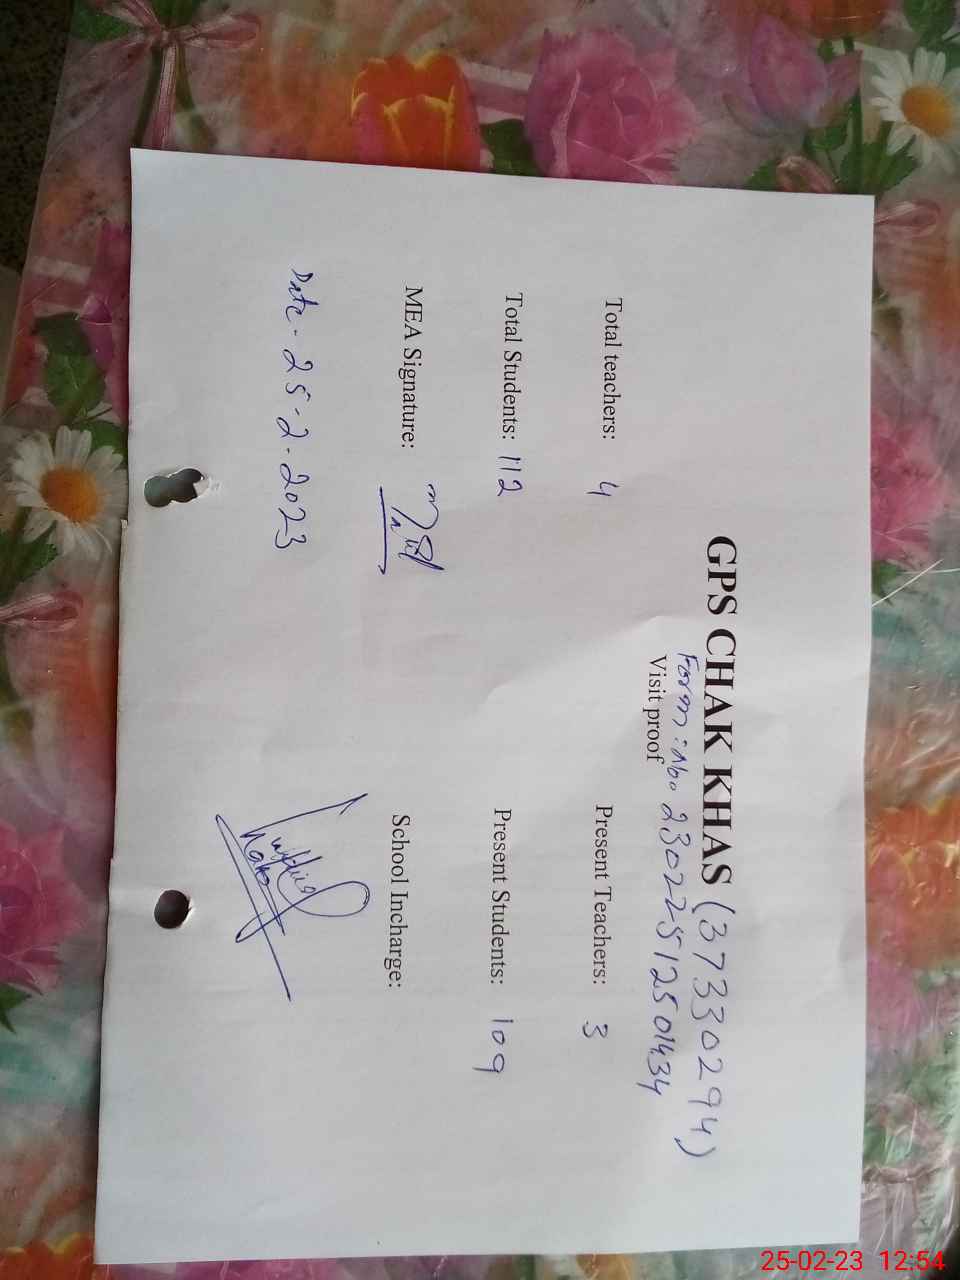 GPS CHAK KHAS (37330294)
Form: No. 23022512501434
Visit proof
Total teachers: 4 Present Teachers: 3
Total Students: 112 Present Students: 109
MEA Signature: School Incharge:
Date - 25-2-2023
25-02-23 12:54